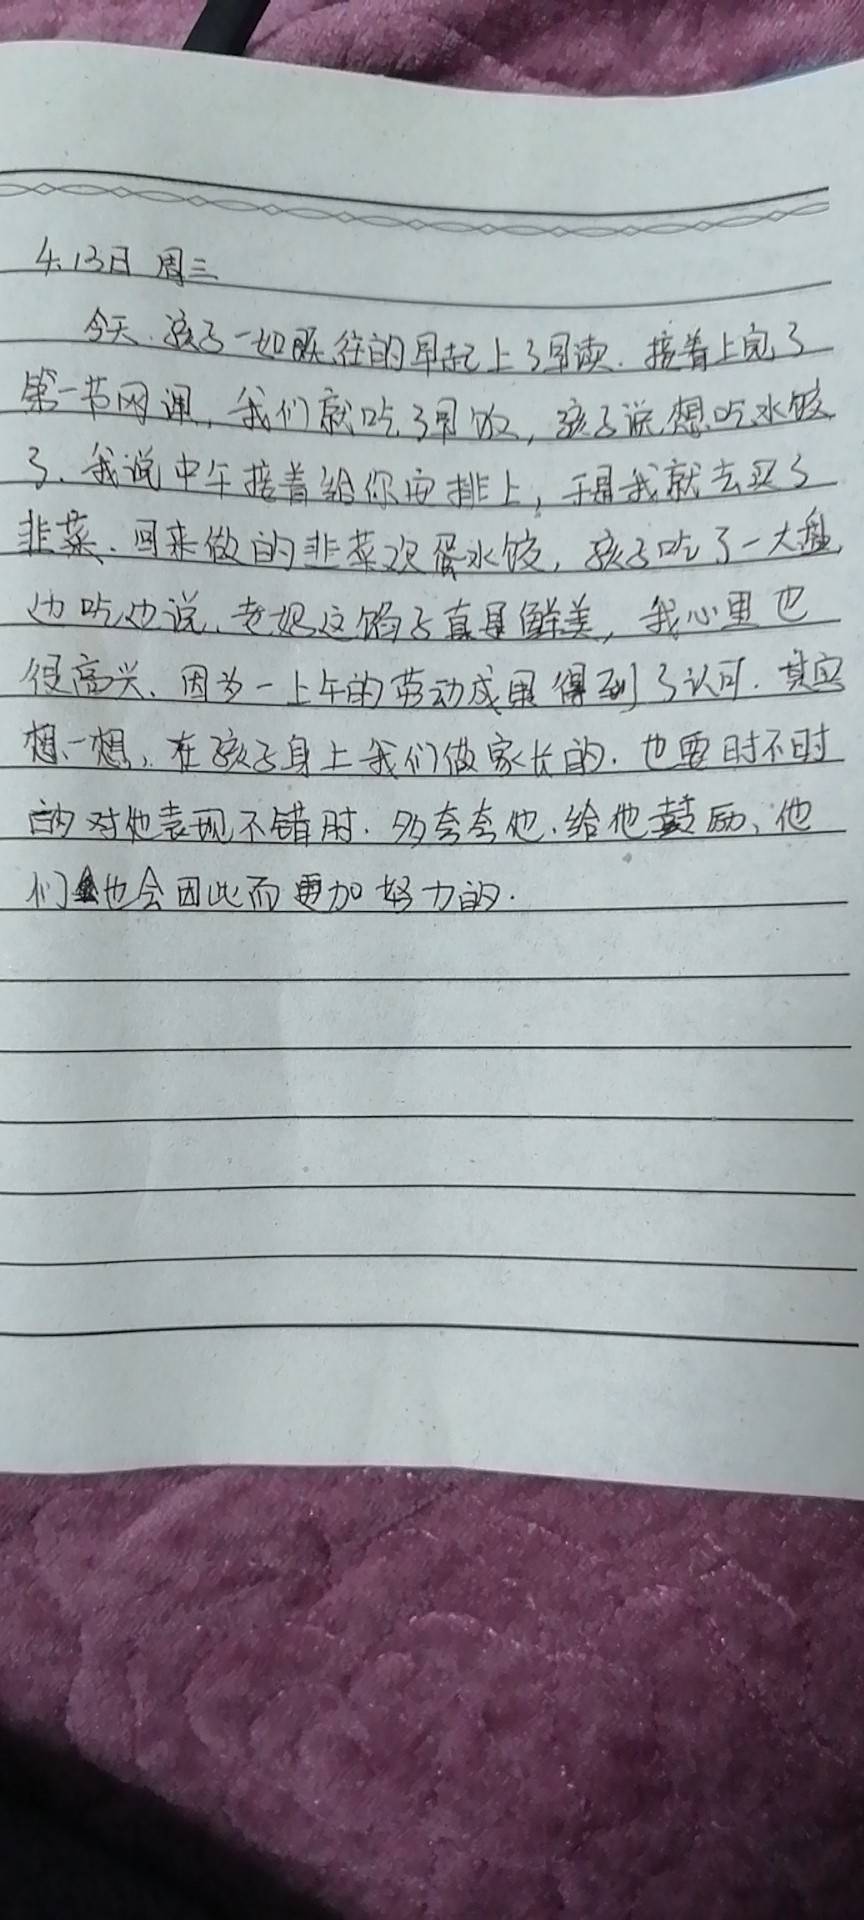 4.13日 周三
今天.孩子一如既往的早起上了早读.接着上完了
第一节网课,我们就吃了早饭,孩子说想吃水饺
了.我说中午接着给你安排上,于是我就去买了
韭菜、回来做的韭菜鸡蛋水饺,孩子吃了一大盘,
边吃边说、老妈这馅子真是鲜美,我心里也
很高兴、因为一上午的劳动成果得到了认可.其实
想一想,在孩子身上我们做家长的.也要时不时
的对他表现不错时.多夸夸他.给他鼓励、他
们也会因此而更加努力的.